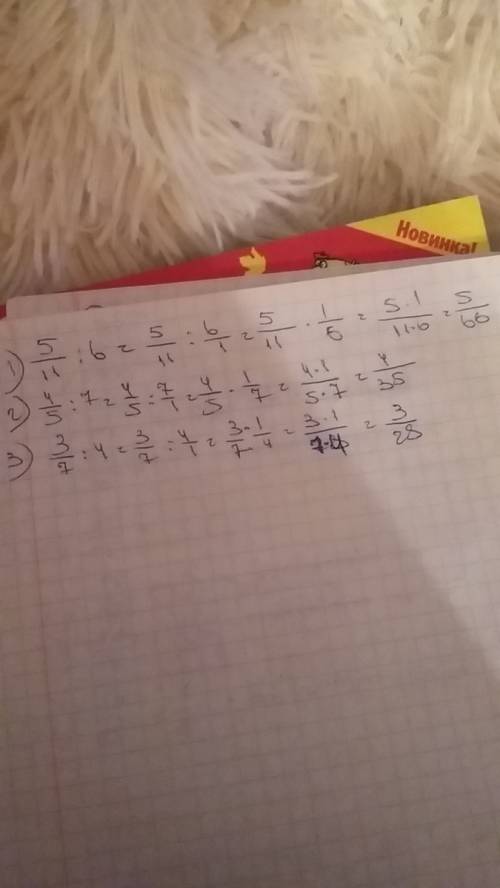 Новинка!
1) 5/11 : 6 = 5/11 : 6/1 = 5/11 · 1/6 = 5·1/11·6 = 5/66
2) 4/5 : 7 = 4/5 : 7/1 = 4/5 · 1/7 = 4·1/5·7 = 4/35
3) 3/7 : 4 = 3/7 : 4/1 = 3/7 · 1/4 = 3·1/7·4 = 3/28